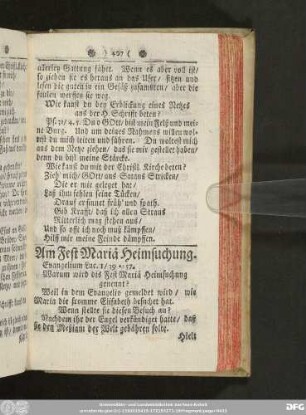 ) 407 (
allerley Gattung fähet. Wenn es aber voll ist/
so ziehen sie es heraus an das Ufer/ sitzen und
lesen die guten in ein Gefäß zusammen/ aber die
faulen werffen sie weg.
Wie kanst du bey Erblickung eines Netzes
aus der H. Schrifft beten?
Ps. 31/ 4. 5. Du o GOtt/ bist mein Felß und mei-
ne Burg. Und um deines Nahmens willen wol-
lest du mich leiten und führen. Du wolltest mich
aus dem Netze ziehen/ das sie mir gestellet haben/
denn du bist meine Stärcke.
Wie kanst du mit der Christl. Kirche beten?
Zieh mich/ GOtt/ aus Satans Stricken/
Die er mir geleget hat/
Laß ihm fehlen seine Tücken/
Drauf er sinnet früh und spath.
Gib Krafft/ daß ich allen Strauß
Ritterlich mag stehen aus/
Und so offt ich noch muß kämpffen/
Hilff mir meine Feinde dämpffen.
Am Fest Mariä Heimsuchung.
Evangelium Luc. 1/ 39 - 57.
Warum wird das Fest Mariä Heimsuchung
genennt?
Weil in dem Evangelio gemeldet wird/ wie
Maria die fromme Elisabeth besuchet hat.
Wenn stellte sie diesen Besuch an?
Nachdem ihr der Engel verkündiget hatte/ daß
sie den Meßiam der Welt gebähren solte.
Hielt